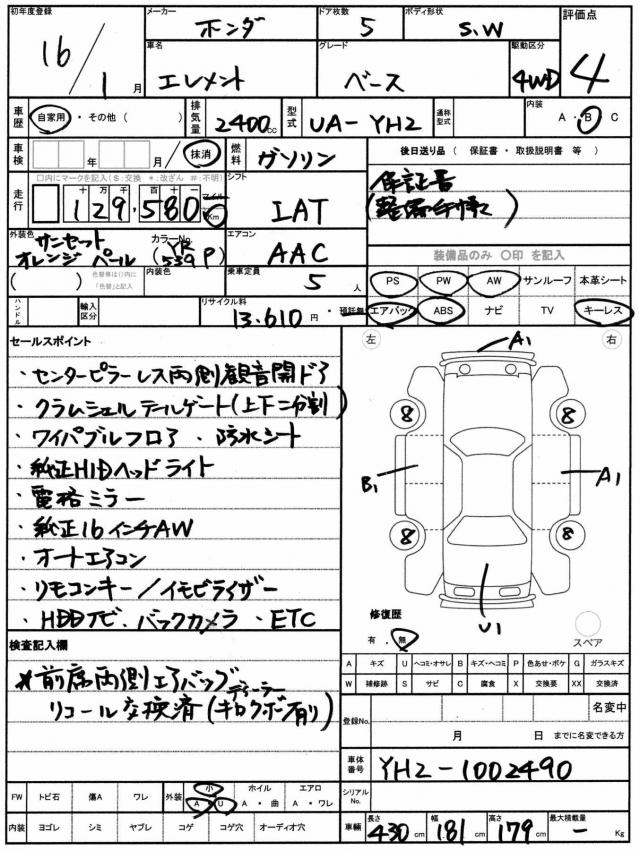 初年度登録 メーカー ホンダ ドア枚数 5 ボディ形状 S.W 評価点
16/1月 車名 エレメント グレード ベース 駆動区分 4WD 4
車歴 自家用・その他( ) 排気量 2400cc 型式 UA-YH2 通称型式 内装 A・B・C
車検 年 月/抹消 燃料 ガソリン 後日送り品 (保証書・取扱説明書 等)
□内にマークを記入(S:交換 *:改ざん #:不明) シフト 保証書
走行 十万千百十一 129,580 マイル Km IAT
外装色 サンセットオレンジパール カラーNo. (YR539P) エアコン AAC 装備品のみ 〇印 を記入
( ) 色替車は()内に「色替」と記入 内装色 乗車定員 5人 PS PW AW サンルーフ 本革シート
ハンドル 輸入区分 リサイクル料 13.610円・預託無 エアバック ABS ナビ TV キーレス
セールスポイント 左 右
・センターピラーレス両側観音開ドア A1
・クラムシェルテールゲート(上下二分割) 8 8
・ワイパブルフロア・防水シート
・純正HIDヘッドライト B1 A1
・電格ミラー
・純正16インチAW 8 8
・オートエアコン
・リモコンキー/イモビライザー 修復歴 U1
・HDDナビ.バックカメラ.ETC 有・無 スペア
検査記入欄 A キズ U ヘコミ・オサレ B キズ・ヘコミ P 色あせ・ボケ G ガラスキズ
*前席両側エアバッグ W 補修跡 S サビ C 腐食 X 交換要 XX 交換済
リコール交換済(ディーラーキロクボ有り) 登録No. 名変中
月 日 までに名変できる方
車体番号 YH2-1002490
FW トビ石 傷A ワレ 外装 小 A・U ホイル A・曲 エアロ A・ワレ シリアルNo.
内装 ヨゴレ シミ ヤブレ コゲ コゲ穴 オーディオ穴 車輛 長さ 430cm 幅 181cm 高さ 179cm 最大積載量 - Kg